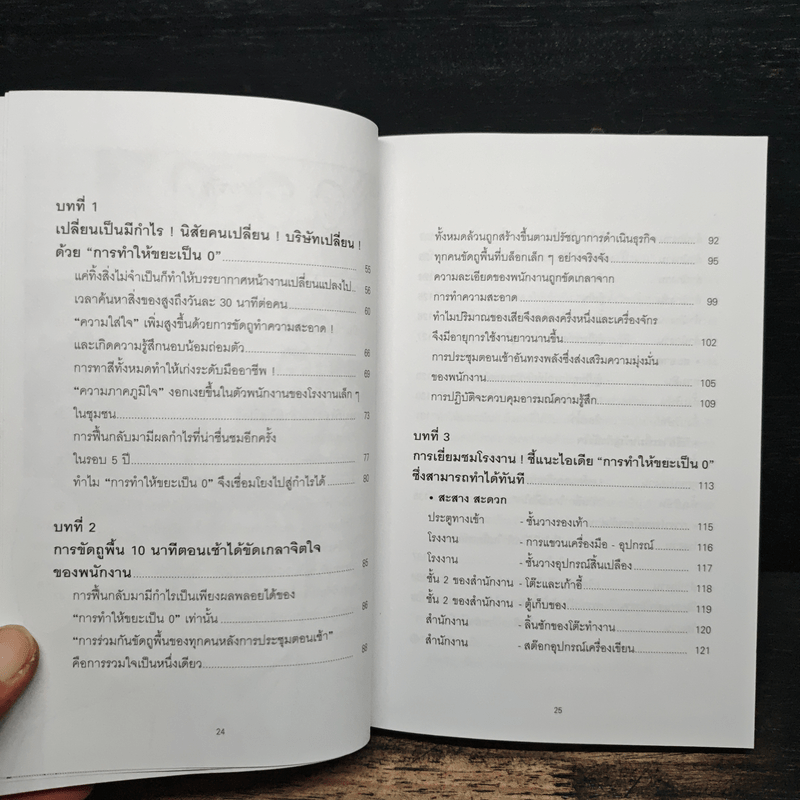 บทที่ 1
เปลี่ยนเป็นมีกำไร ! นิสัยคนเปลี่ยน ! บริษัทเปลี่ยน !
ด้วย “การทำให้ขยะเป็น 0” 55
แค่ทิ้งสิ่งไม่จำเป็นก็ทำให้บรรยากาศหน้างานเปลี่ยนแปลงไป.. 56
เวลาค้นหาสิ่งของสูงถึงวันละ 30 นาทีต่อคน 60
“ความใส่ใจ” เพิ่มสูงขึ้นด้วยการขัดถูทำความสะอาด !
และเกิดความรู้สึกนอบน้อมถ่อมตัว 66
การทาสีทั้งหมดทำให้เก่งระดับมืออาชีพ ! 69
“ความภาคภูมิใจ” งอกเงยขึ้นในตัวพนักงานของโรงงานเล็ก ๆ
ในชุมชน 73
การฟื้นกลับมามีผลกำไรที่น่าชื่นชมอีกครั้ง
ในรอบ 5 ปี 77
ทำไม “การทำให้ขยะเป็น 0” จึงเชื่อมโยงไปสู่กำไรได้ 80
บทที่ 2
การขัดถูพื้น 10 นาทีตอนเช้าได้ขัดเกลาจิตใจ
ของพนักงาน 85
การฟื้นกลับมามีกำไรเป็นเพียงผลพลอยได้ของ
“การทำให้ขยะเป็น 0” เท่านั้น 86
“การร่วมกันขัดถูพื้นของทุกคนหลังการประชุมตอนเช้า”
คือการรวมใจเป็นหนึ่งเดียว 88
24
ทั้งหมดล้วนถูกสร้างขึ้นตามปรัชญาการดำเนินธุรกิจ 92
ทุกคนขัดถูพื้นที่บล็อกเล็ก ๆ อย่างจริงจัง 95
ความละเอียดของพนักงานถูกขัดเกลาจาก
การทำความสะอาด 99
ทำไมปริมาณของเสียจึงลดลงครึ่งหนึ่งและเครื่องจักร
จึงมีอายุการใช้งานยาวนานขึ้น 102
การประชุมตอนเช้าอันทรงพลังซึ่งส่งเสริมความมุ่งมั่น
ของพนักงาน 105
การปฏิบัติจะควบคุมอารมณ์ความรู้สึก 109
บทที่ 3
การเยี่ยมชมโรงงาน ! ชี้แนะไอเดีย “การทำให้ขยะเป็น 0”
ซึ่งสามารถทำได้ทันที 113
• สะสาง สะดวก
ประตูทางเข้า - ชั้นวางรองเท้า 115
โรงงาน - การแขวนเครื่องมือ - อุปกรณ์ 116
โรงงาน - ชั้นวางอุปกรณ์สิ้นเปลือง 117
ชั้น 2 ของสำนักงาน - โต๊ะและเก้าอี้ 118
ชั้น 2 ของสำนักงาน - ตู้เก็บของ 119
สำนักงาน - ลิ้นชักของโต๊ะทำงาน 120
สำนักงาน - สต๊อกอุปกรณ์เครื่องเขียน 121
25